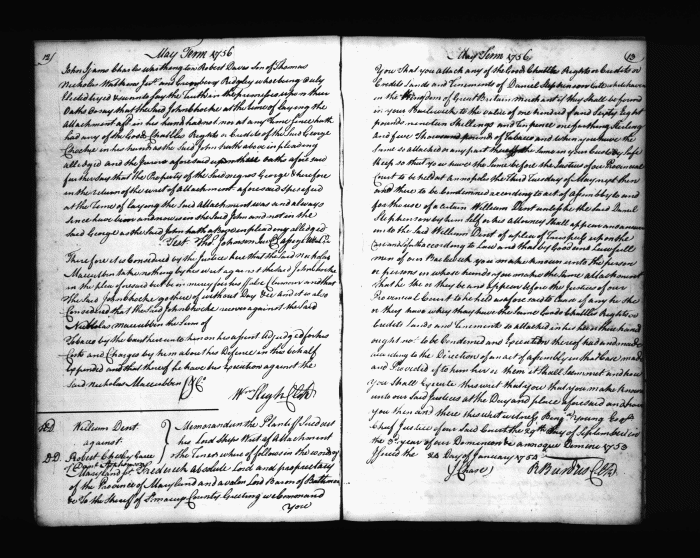 12
May Term 1756
John Charles Robert Davis Son of Thomas
Nicholas Watkins and Ridgley who being duly
Elected tryed & sworn to say the Truth in the premises upon their
Oaths do say that the said John at the time of laying the
attachment afd. in his hands had not nor at any Time since hath
had any of the Goods Chattles Rights or Credits of the said George
in his hands as the said John hath above in pleading
alledged and the Jurors aforesaid upon their oaths aforesaid
further say that the Property of the said negroes George therefore
in the return of the writ of attachment aforesaid Specified
at the Time of laying the said attachment was and always
since have been and now is in the said John and not in the
said George as the said John hath above in pleading alledged
Test Thos. Johnson
Therefore it is Considered by the Justices here that the said Nicholas
Maccubbin take nothing by his writ against the said John
in the plea aforesaid but be in mercy for his false Clamour and that
the said John go thereof without Day &c and it is also
Considered that the said John recover against the said
Nicholas Maccubbin the Sum of
Tobacco by the Court here unto him on his assent Adjudged for his
Costs and Charges by him about his Defence in this behalf
Expended and that thereof he have his Execution against the
said Nicholas Maccubbin &c
Wm Sligh Clk
William Dent
against
Robert
Memorandum the Plantiff Sued out
his Lord Ships Writ of Attachment
the Tenor whereof follows in the words
Maryland Sc. Frederick absolute Lord and proprietary
of the Province of Maryland and avalon Lord Baron of Baltimore
&c To the Sheriff of County Greeting we Command
You
May Term 1756
13
You that you attach any of the Goods Chattles Rights or Credits or
Credits Lands and Tenements of Daniel Stephenson
in the Kingdom of Great Britain Merchant if they shall be found
in your Bailiwick to the value of one hundred and Sixty Eight
pounds nineteen Shillings and four pence farthing Sterling
and five Thousand pounds of Tobacco and when you have the
same so attached or any part thereof the same in your Custody Safe
Keep so that you have the same before the Justices of our Provincial
Court to be held at annapolis the Third Tuesday of May next then
and there to be Condemned according to act of assembly to and
for the use of a certain William Dent unless the said Daniel
Stephenson by himself or his attorney shall appear and answer
unto the said William Dent of a plea of Trespass upon the
Case and so forth according to Law and that by good and Lawfull
men of our Bailiwick you make known unto the person
or persons in whose hands you make the same attachment
that he she or they be and appear before the Justices of our
Provincial Court to be held as aforesaid to shew Cause if any he she
or they have why they have the same Goods Chattles Rights or
Credits Lands and Tenements so attached in his her or their hands
ought not to be Condemned and Execution thereof had and made
according to the Direction of an act of assembly in that Case made
and Provided if to him her or them it shall seem meet and how
you shall Execute this writ that you that you make known
unto our said Justices at the Day and place aforesaid and have
you then and there this writ witness Young Esqr.
Chief Justice of our said Court the Day of September in
the 3d year of our Dominion &c annoque Domini 1753
Issued the 28 Day of January 1753